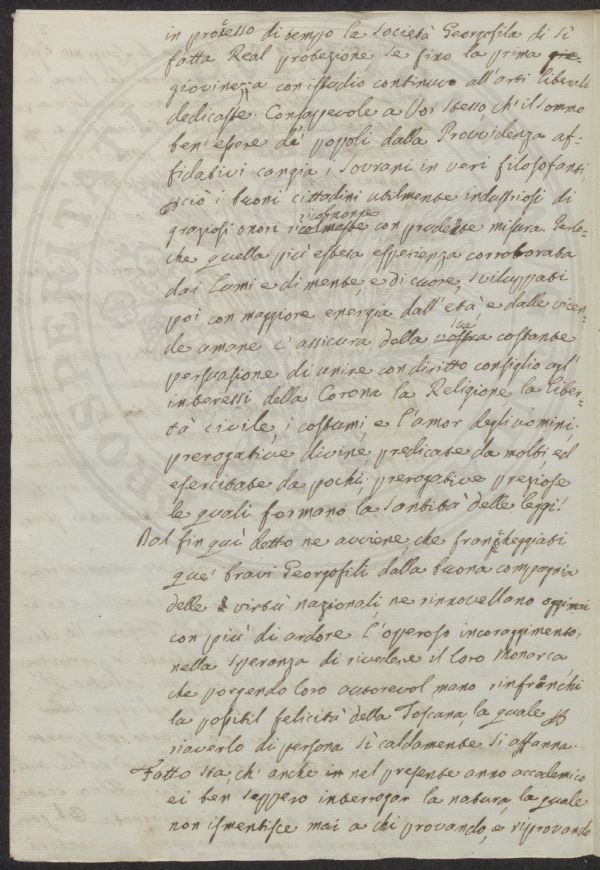 in progresso di tempo la Società Georgofila di sì
fatta Real protezione se fino la prima
giovinezza con istudio continuo all'arti liberali
dedicaste. Consapevole a Voi stesso, ch'il sommo
ben'essere de' popoli dalla Provvidenza af-
fidativi cangia i Sovrani in veri filosofanti
acciò i buoni cittadini utilmente industriosi di
graziosi onori ricolmaste con prudente misura. Perlo-
che quella più estesa esperienza corroborata
dai lumi e di mente, e di cuore, sviluppati
poi con maggiore energia dall'età, e dalle vicen-
de umane c'assicura della vostra costante
persuasione di unire con diritto consiglio agl'
interessi della Corona la Religione la liber-
tà civile, i costumi, e l'amor degli uomini,
prerogative divine, predicate da molti, ed
esercitate da pochi, prerogative preziose
le quali formano la Santità delle leggi.
Dal fin quì detto ne avviene, che francheggiati
que' bravi Georgofili dalla buona compagnia
delle virtù nazionali ne rinnovellano oggimai
con più di ardore l'operoso incoraggimento,
nella speranza di rivedere il loro Monarca
che porgendo loro autorevol mano rinfranchi
la possibil felicità della Toscana, la quale per
riaverlo di persona sì caldamente si affanna.
Fatto sta, ch'anche nel presente anno accademico
ei ben seppero interrogar la natura, la quale
non ismentisce mai a chi provando, e riprovando